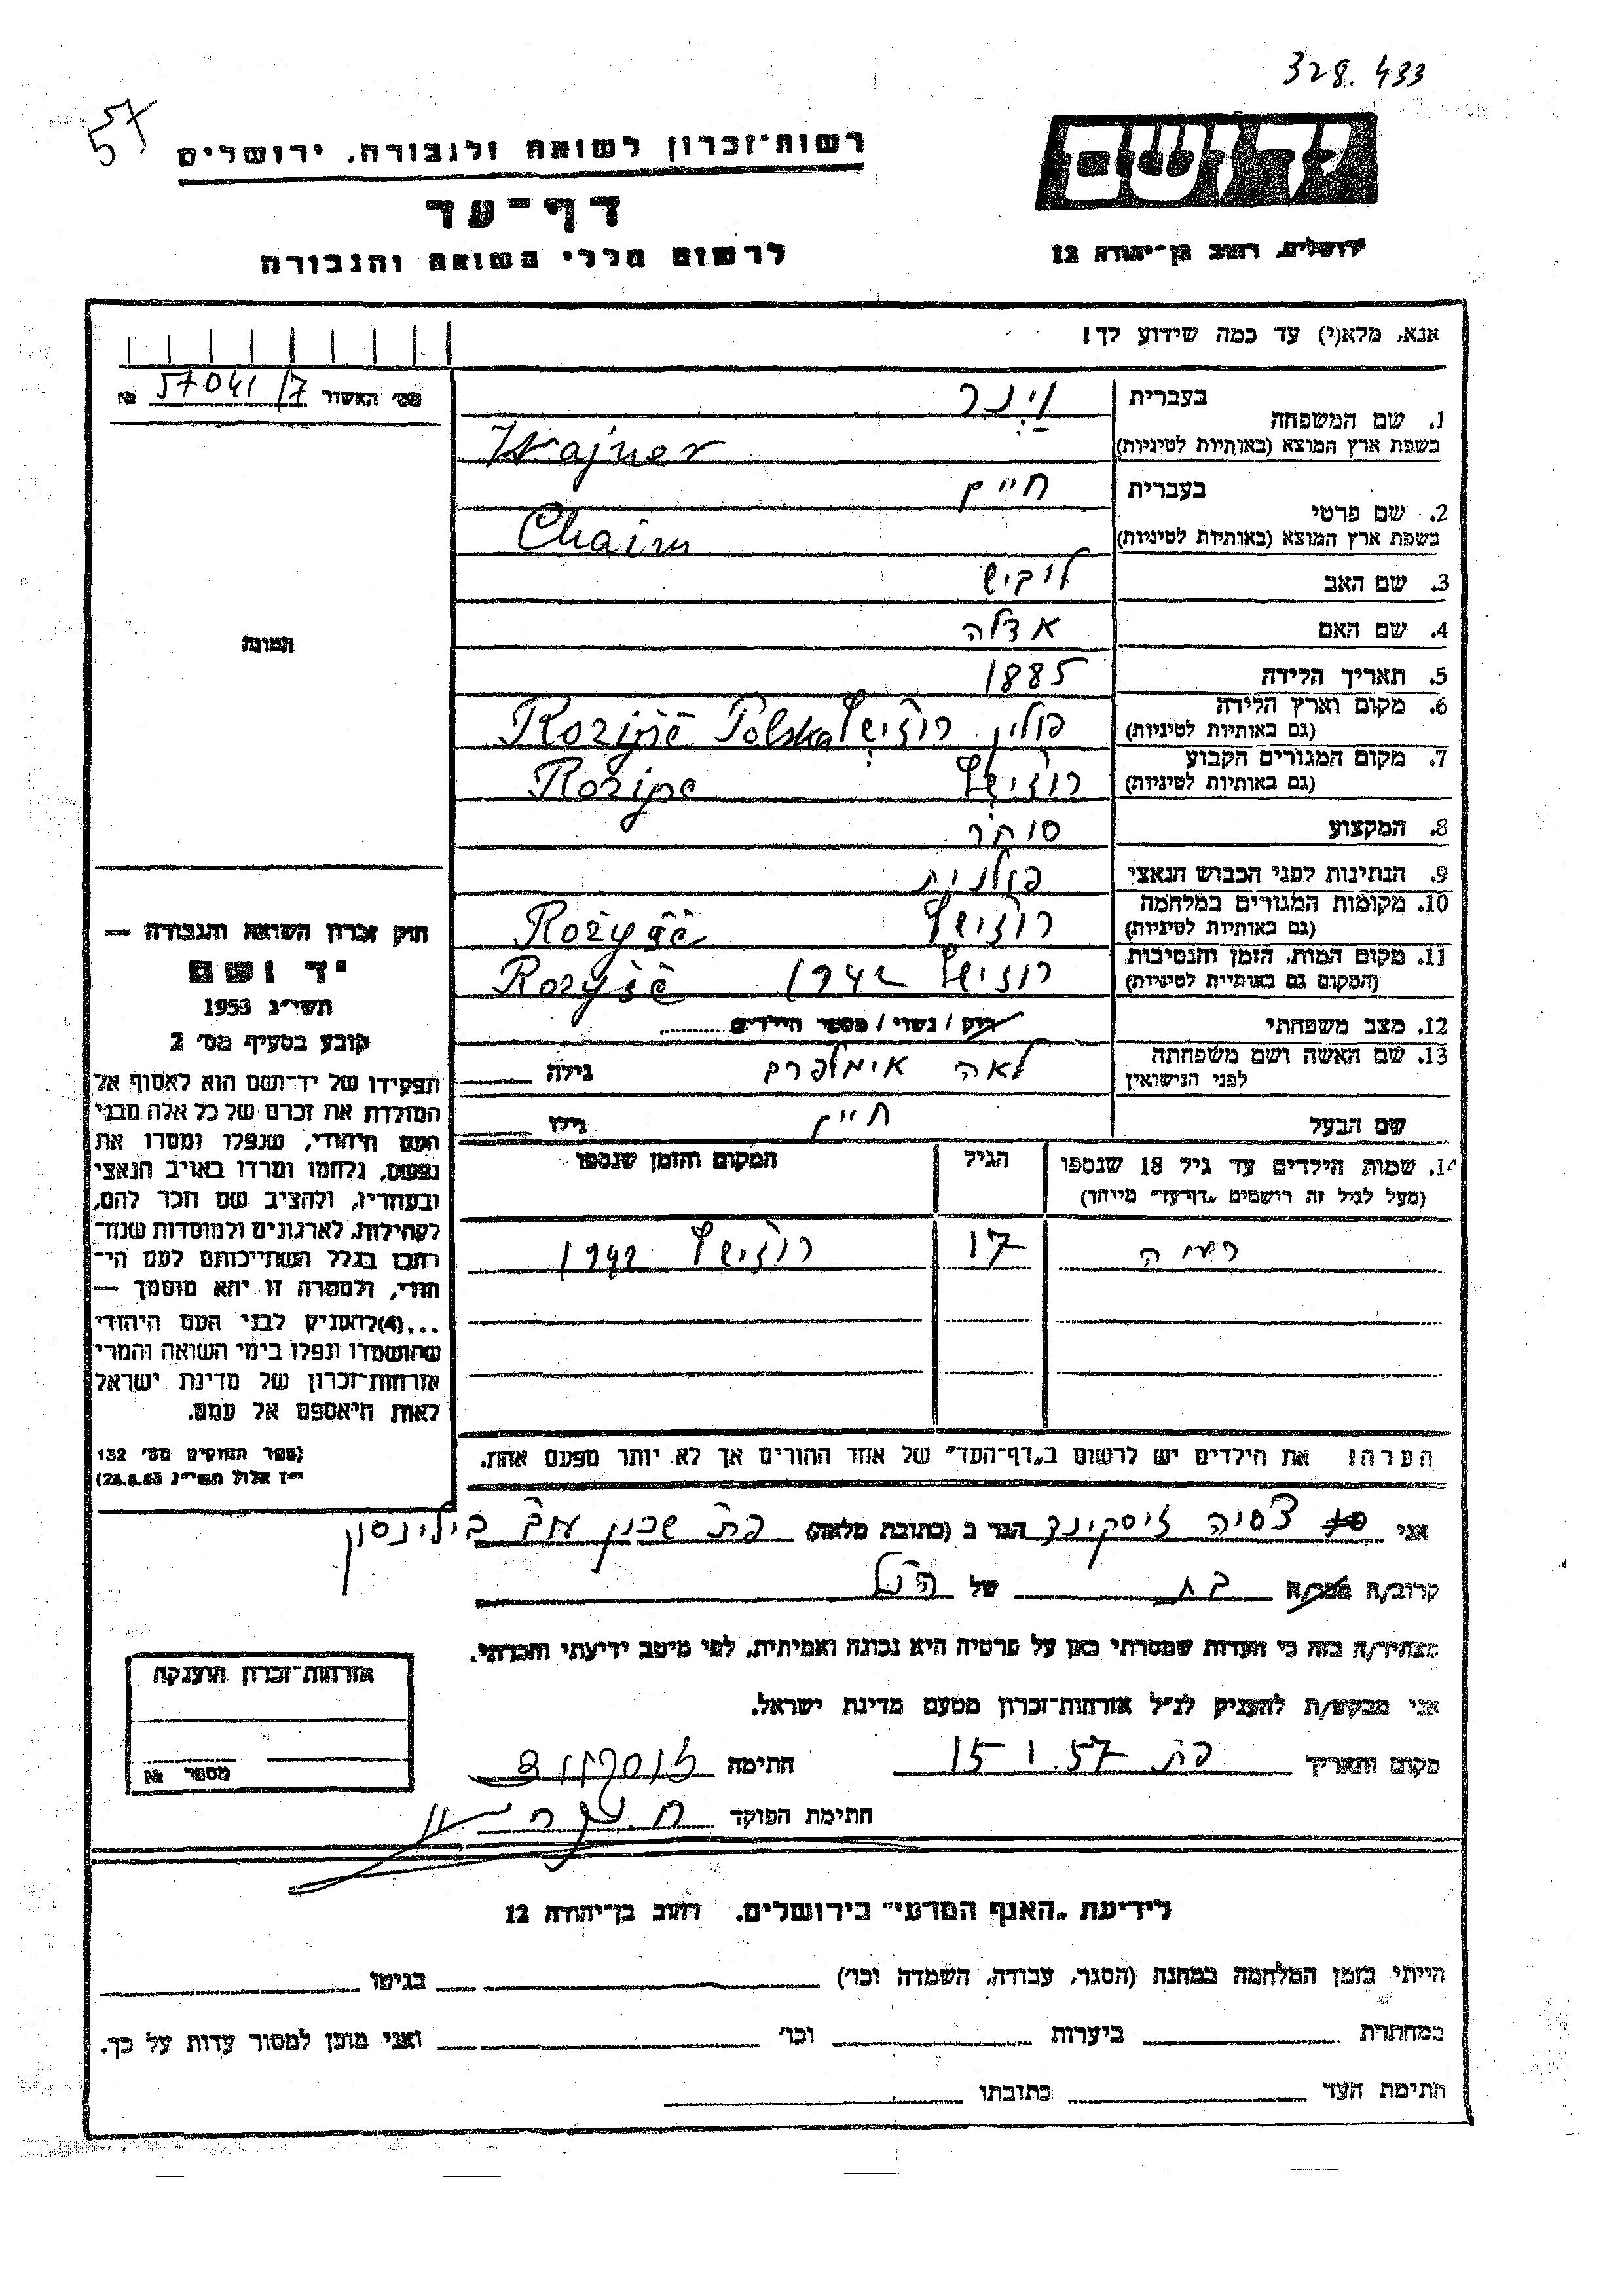 328.433
57
רשות־זכרון לשואה ולגבורה, ירושלים
דף־עד
לרשום חללי השואה והגבורה
יד ושם
ירושלים, רחוב בן־יהודה 12
אנא, מלא(י) עד כמה שידוע לך!
מס' האשור 57041/7 №
1. שם המשפחה
בעברית וינר
בשפת ארץ המוצא (באותיות לטיניות) Wajner
2. שם פרטי
בעברית חיים
בשפת ארץ המוצא (באותיות לטיניות) Chaim
3. שם האב לוביש
4. שם האם אדלה
5. תאריך הלידה 1885
6. מקום וארץ הלידה פולין רוז'ישץ Polska
(גם באותיות לטיניות)
7. מקום המגורים הקבוע רוז'ישץ
(גם באותיות לטיניות)
8. המקצוע סוחר
9. הנתינות לפני הכבוש הנאצי פולנית
10. מקומות המגורים במלחמה רוז'ישץ
(גם באותיות לטיניות)
11. מקום המות, הזמן והנסיבות רוז'ישץ 1942
(המקום גם באותיות לטיניות)
12. מצב משפחתי רוק / נשוי / מספר הילדים
13. שם האשה ושם משפחתה לפני הנישואין לאה גילה
שם הבעל חיים גילו
14. שמות הילדים עד גיל 18 שנספו הגיל המקום והזמן שנספו
(מעל לגיל זה רושמים „דף־עד" מיוחד)
17 רוז'ישץ 1942
הערה: את הילדים יש לרשום ב„דף־העד" של אחד ההורים אך לא יותר מפעם אחת.
התמונה
חוק זכרון השואה והגבורה —
יד ושם
תשי"ג 1953
קובע בסעיף מס' 2
תפקידו של יד־ושם הוא לאסוף אל
המולדת את זכרם של כל אלה מבני
העם היהודי, שנפלו ומסרו את
נפשם, נלחמו ומרדו באויב הנאצי
ובעוזריו, ולהציב שם וזכר להם,
לקהילות, לארגונים ולמוסדות שנח־
רבו בגלל השתייכותם לעם הי־
הודי, ולמטרה זו יהא מוסמך —
...(4)להעניק לבני העם היהודי
שהושמדו ונפלו בימי השואה והמרי
אזרחות־זכרון של מדינת ישראל
לאות היאספם אל עמם.
(ספר החוקים מס' 132
י"ז אלול תשי"ג 28.8.53)
אני זיסקינד הגר ב (כתובת מלאה) פת שכון עוב בילינסון
קרוב/ה מכר/ה בת של הנ"ל
מצהיר/ה בזה כי העדות שמסרתי כאן על פרטיה היא נכונה ואמיתית, לפי מיטב ידיעתי והכרתי.
אני מבקש/ת להעניק לנ"ל אזרחות־זכרון מטעם מדינת ישראל.
מקום ותאריך פת 15.1.57 חתימה
חתימת הפוקד
אזרחות־זכרון הוענקה
מספר №
לידיעת „האגף המדעי" בירושלים. רחוב בן־יהודה 12
הייתי בזמן המלחמה במחנה (הסגר, עבודה, השמדה וכו') בגיטו
במחתרת ביערות וכו' ואני מוכן למסור עדות על כך.
חתימת העד כתובתו